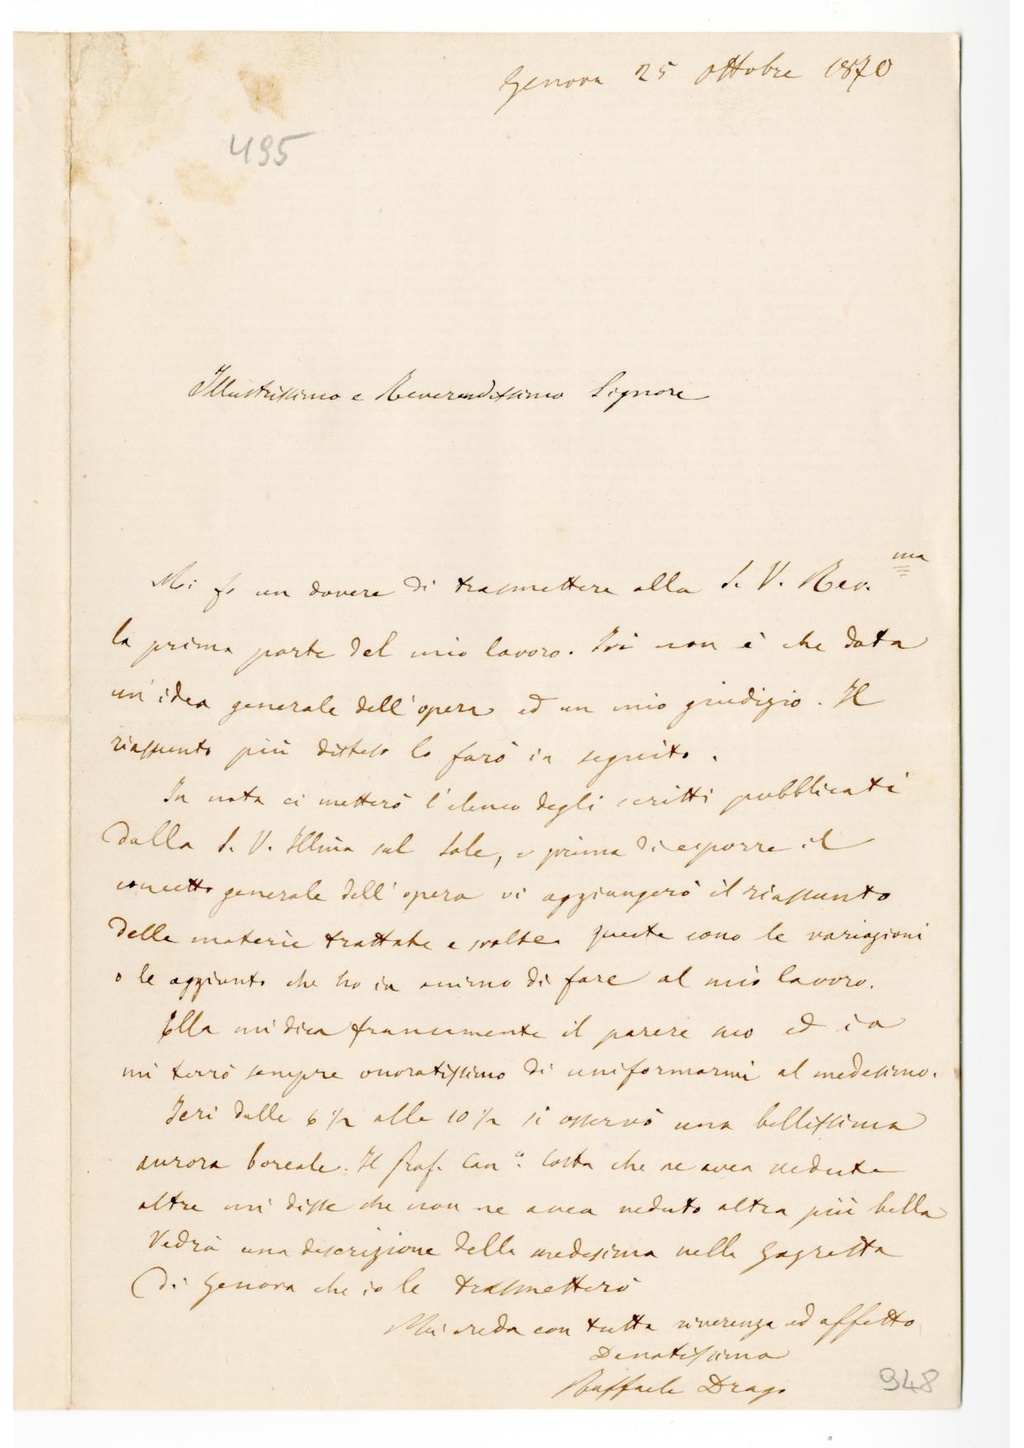 Genova 25 Ottobre 1870
495
Illustrissimo e Reverendissimo Signore
Mi fo un dovere di trasmettere alla S. V. Rev.ma
la prima parte del mio lavoro. Ivi non è che data
un'idea generale dell'opera ed un mio giudizio. Il
riassunto più disteso lo farò in seguito.
In nota ci metterò l'elenco degli scritti pubblicati
dalla S. V. Illma sul Sole, e prima di esporre il
concetto generale dell'opera vi aggiungerò il riassunto
delle materie trattate e svolte. queste sono le variazioni
o le aggiunte che ho in animo di fare al mio lavoro.
Ella mi dica francamente il parere suo ed io
mi terrò sempre onoratissimo di uniformarmi al medesimo.
Jeri dalle 6 1/2 alle 10 1/2 si osservò una bellissima
aurora boreale. Il Prof. Can.o Costa che ne avea vedute
altre mi disse che non ne avea veduto altra più bella
Vedrà una descrizione della medesima nella Gazzetta
di Genova che io le trasmetterò
Mi creda con tutta riverenza ed affetto
Devotissimo
Raffaele Drago
948